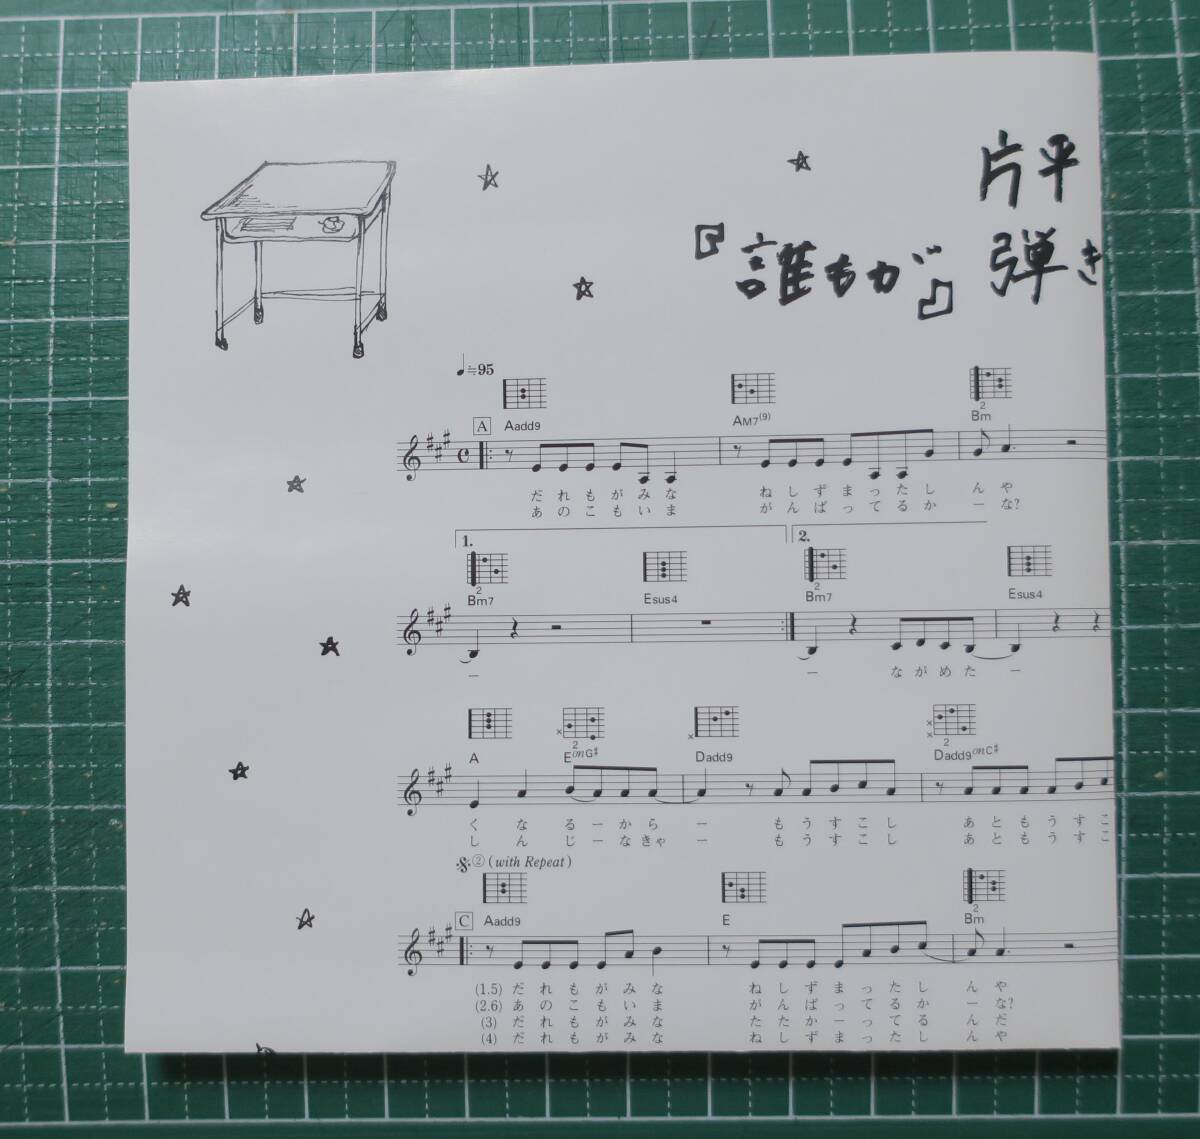 片平
『誰もが』弾き
♩≒95
A Aadd9 AM7(9) Bm
2
だれもがみな ねしずまったしんや
あのこもいま がんばってるかーな?
1. 2.
2 2
Bm7 Esus4 Bm7 Esus4
ー ーながめたー
A EonG♯ Dadd9 Dadd9onC♯
2 2
くなるーからー もうすこし あともうすこ
しんじーなきゃー もうすこし あともうすこ
𝄋②(with Repeat)
C Aadd9 E Bm
2
(1.5)だれもがみな ねしずまったしんや
(2.6)あのこもいま がんばってるかーな?
(3)だれもがみな たたかーってるんだ
(4)だれもがみな ねしずまったしんや